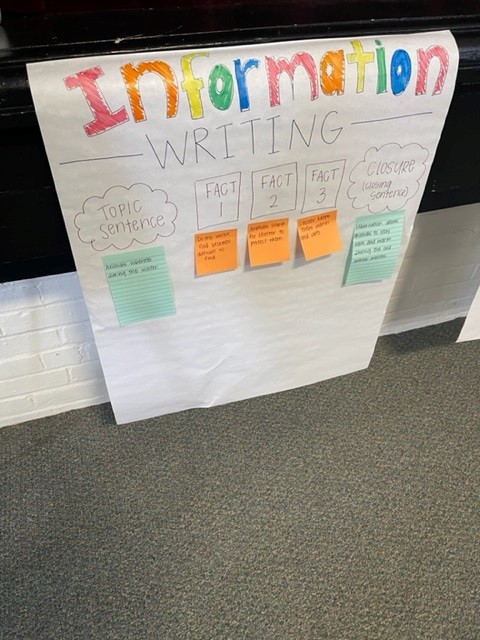 Information
WRITING
TOPIC
sentence
FACT
1
FACT
2
FACT
3
CLOSURE
(closing
sentence)
Animals hibernate
during the winter.
find
difficult to
find.
Animals
for shelter to
protect them
warm
and safe
Hibernation allows
animals to stay
safe and warm
during the cold
winter months